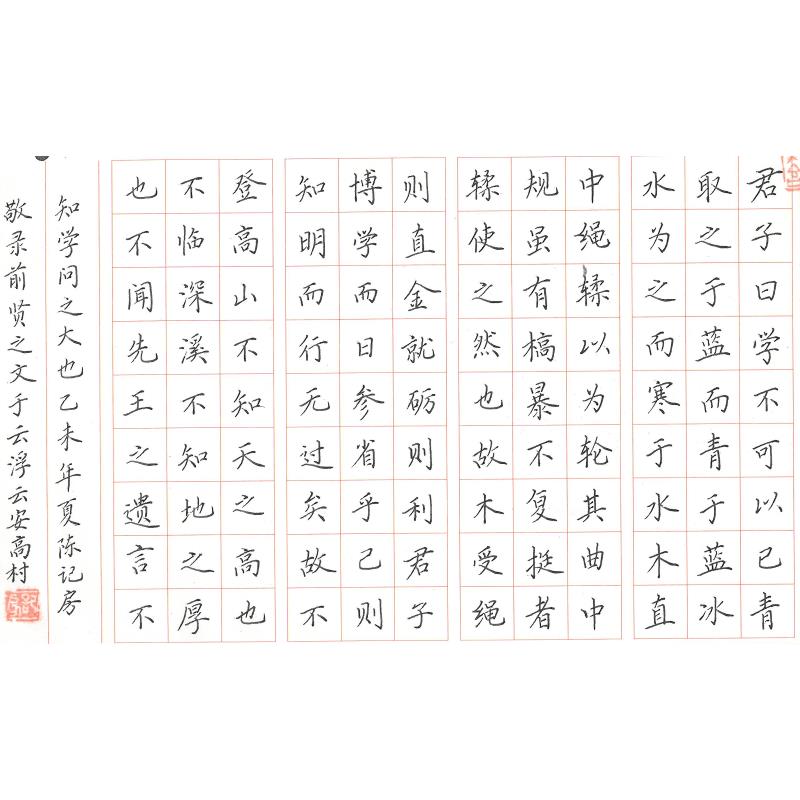 君子曰学不可以已青
取之于蓝而青于蓝冰
水为之而寒于水木直
中绳𫐓以为轮其曲中
规虽有槁暴不复挺者
𫐓使之然也故木受绳
则直金就砺则利君子
博学而日参省乎己则
知明而行无过矣故不
登高山不知天之高也
不临深溪不知地之厚
也不闻先王之遗言不
知学问之大也乙未年夏陈记房
敬录前贤之文于云浮云安高村